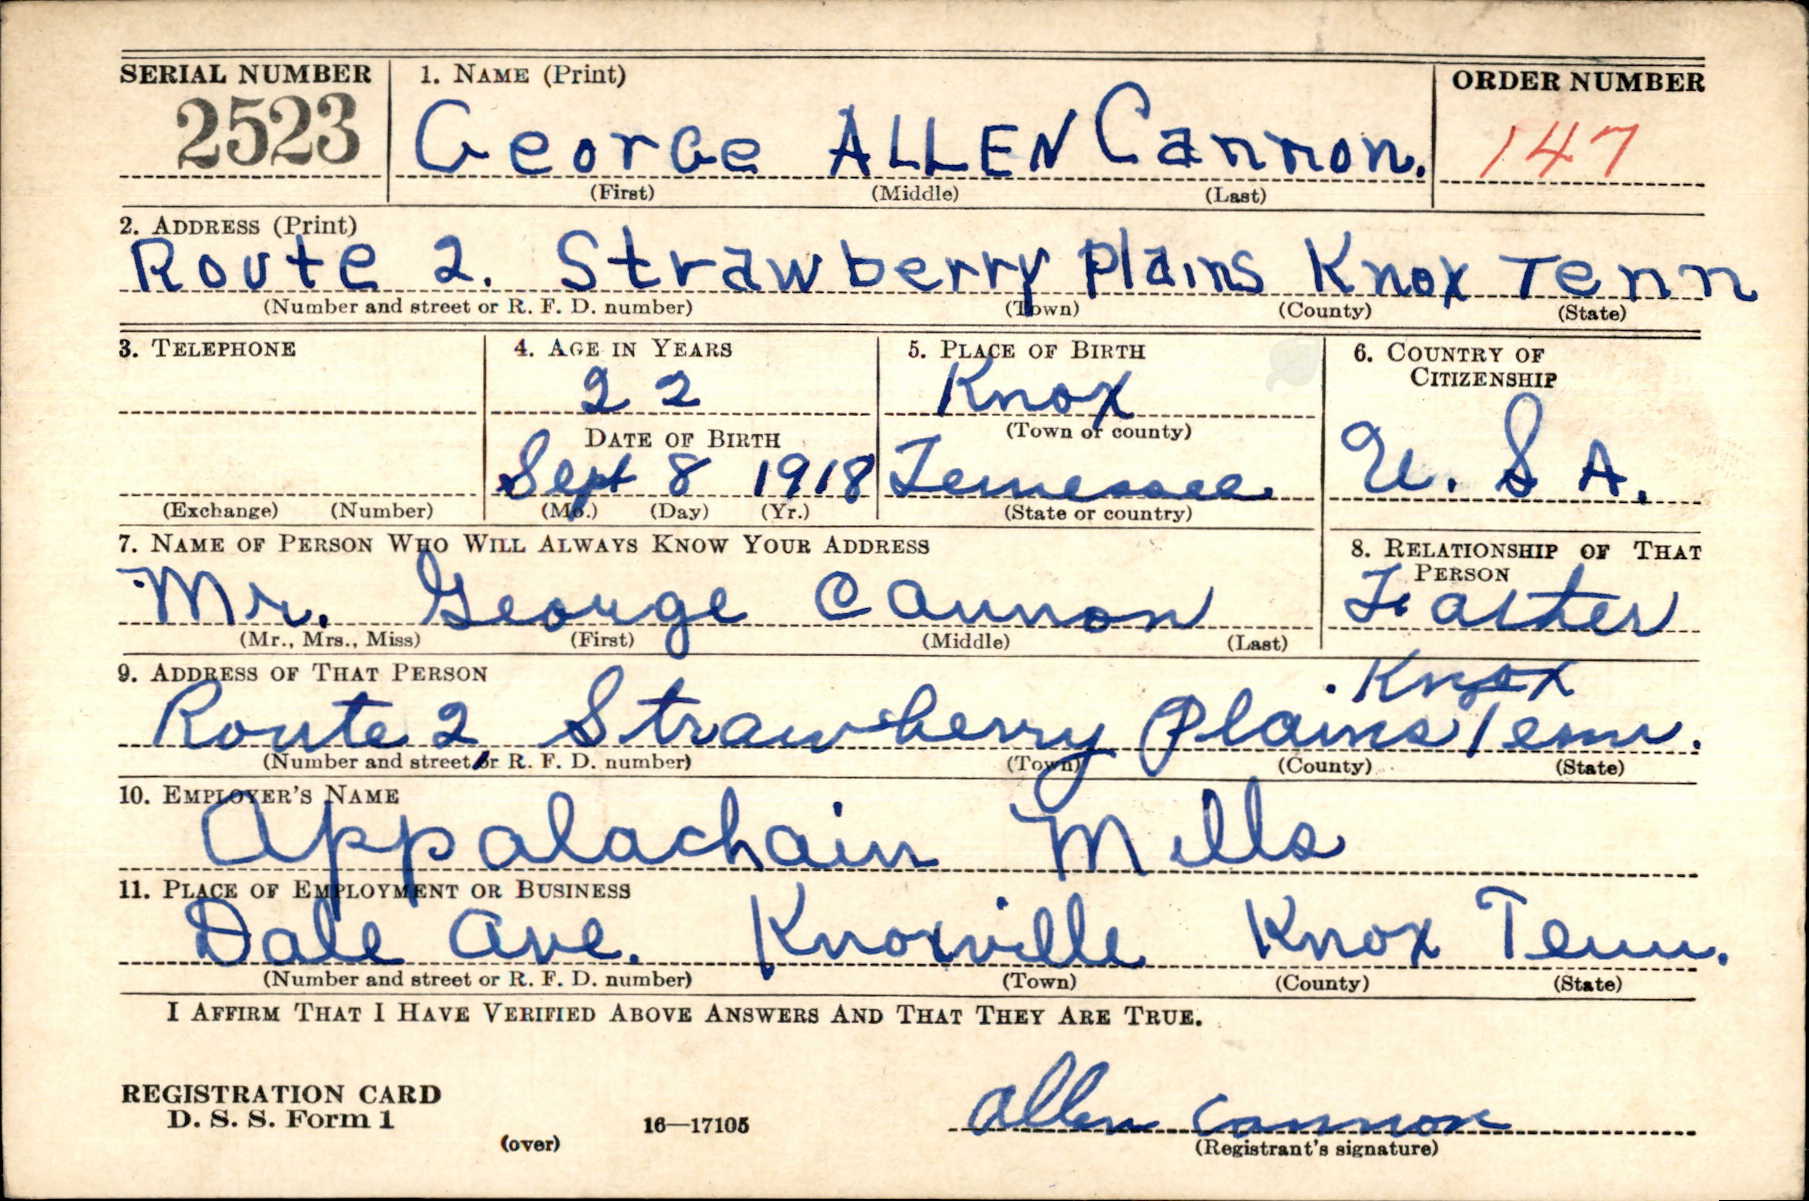 SERIAL NUMBER 1. NAME (Print) ORDER NUMBER
2523 George ALLEN Cannon. 147
(First) (Middle) (Last)
2. ADDRESS (Print)
Route 2. Strawberry Plains Knox Tenn
(Number and street or R. F. D. number) (Town) (County) (State)
3. TELEPHONE 4. AGE IN YEARS 5. PLACE OF BIRTH 6. COUNTRY OF
CITIZENSHIP
22 Knox
(Town or county)
DATE OF BIRTH
Sept 8 1918 Tennessee U. S A.
(Exchange) (Number) (Mo.) (Day) (Yr.) (State or country)
7. NAME OF PERSON WHO WILL ALWAYS KNOW YOUR ADDRESS 8. RELATIONSHIP OF THAT
PERSON
Mr. George Cannon Father
(Mr., Mrs., Miss) (First) (Middle) (Last)
9. ADDRESS OF THAT PERSON Knox
Route 2, Strawberry Plains Tenn.
(Number and street or R. F. D. number) (Town) (County) (State)
10. EMPLOYER'S NAME
Appalachain Mills
11. PLACE OF EMPLOYMENT OR BUSINESS
Dale Ave. Knoxville Knox Tenn.
(Number and street or R. F. D. number) (Town) (County) (State)
I AFFIRM THAT I HAVE VERIFIED ABOVE ANSWERS AND THAT THEY ARE TRUE.
REGISTRATION CARD
D. S. S. Form 1 16—17105 Allen Cannon
(over) (Registrant's signature)